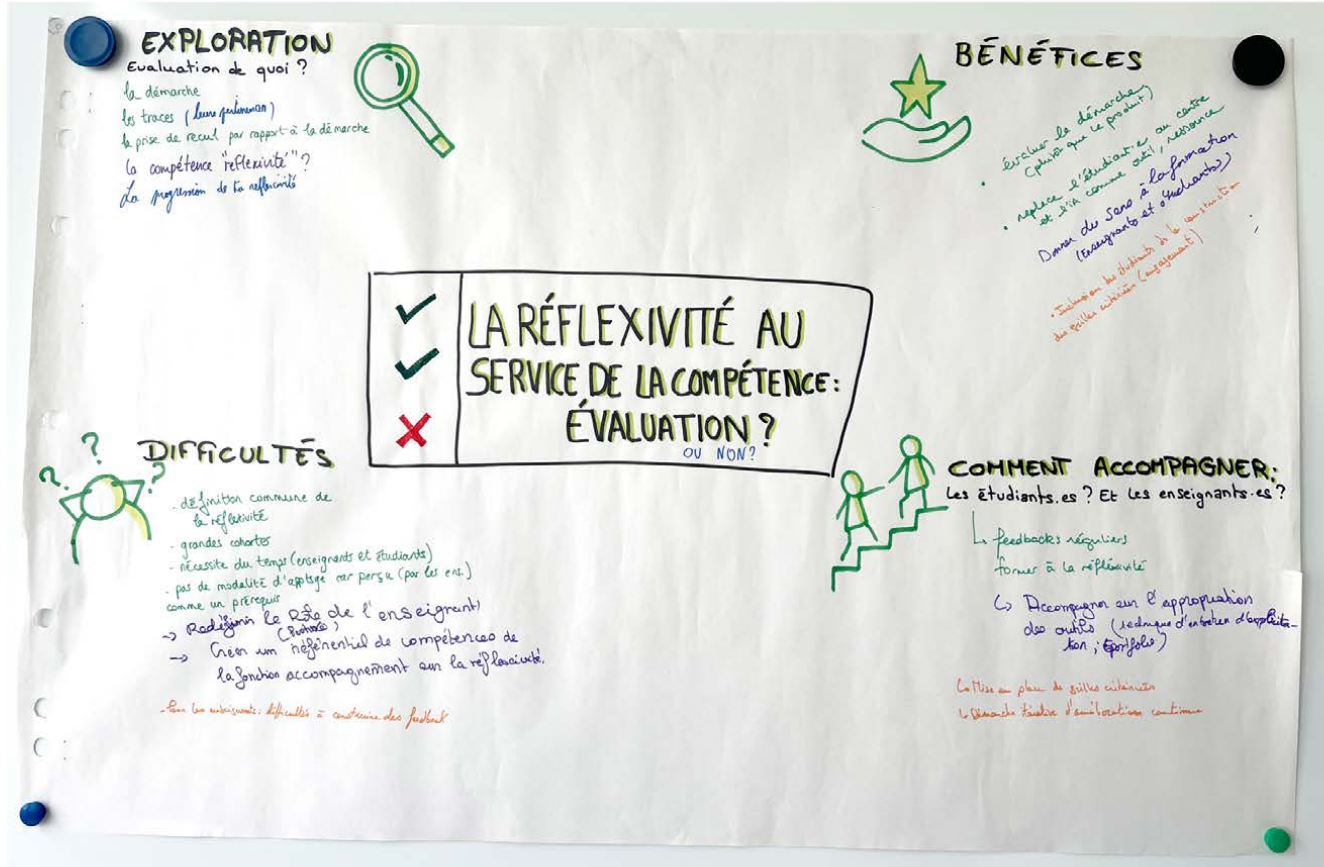 EXPLORATION
Evaluation de quoi ?
la démarche
les traces (leurs pertinences)
la prise de recul par rapport à la démarche
la compétence "réflexivité" ?
La progression de la réflexivité
BÉNÉFICES
. évaluer la démarche
(plutôt que le produit)
. replace l'étudiant·e au centre
et l'IA comme outil, ressource
Donner du sens à la formation
(Enseignants et étudiants)
. Inclusion des étudiants de la construction
des grilles critériées (engagement)
LA RÉFLEXIVITÉ AU
SERVICE DE LA COMPÉTENCE:
ÉVALUATION ?
OU NON?
DIFFICULTÉS
. définition commune de
la réflexivité
. grandes cohortes
. nécessite du temps (enseignants et étudiants)
. pas de modalité d'apptsge car perçu (par les ens.)
comme un prérequis
→ Redéfinir le Rôle de l'enseignant
(Posture)
→ Créer un référentiel de compétences de
la fonction accompagnement sur la réflexivité.
- Pour les enseignants: difficultés à construire des feedback
COMMENT ACCOMPAGNER:
Les étudiants.es ? Et les enseignants·es ?
↳ feedbacks réguliers
former à la réflexivité
↳ Accompagner sur l'appropriation
des outils (technique d'entretien d'explicita-
tion ; Eportfolio)
↳ Mise en place de grilles critériées
↳ Démarche d'amélioration continue